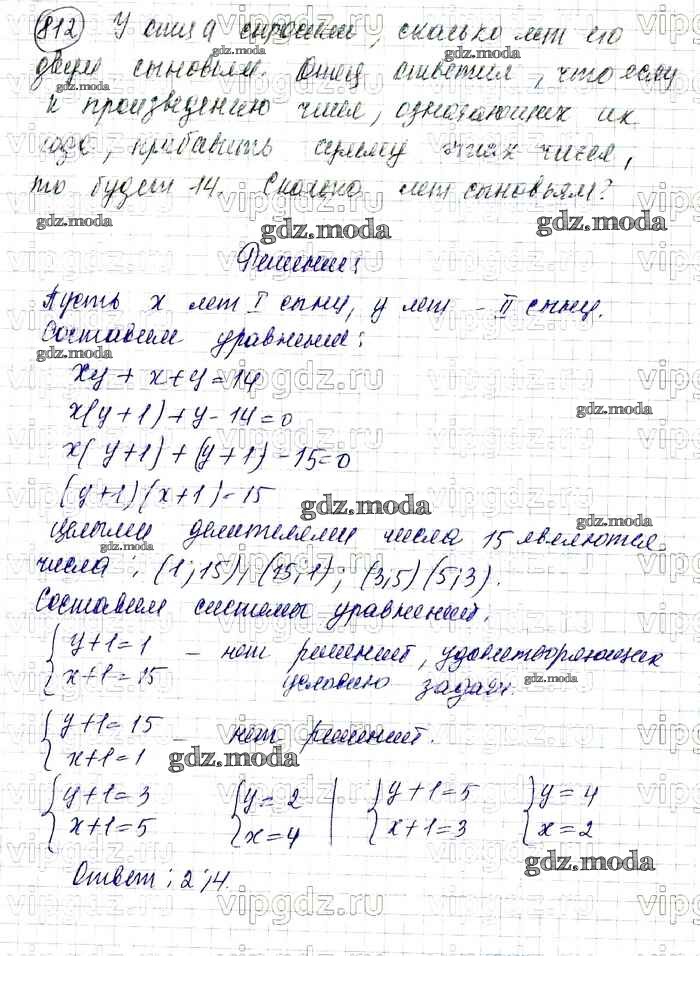 812 У отца спросили, сколько лет его
двум сыновьям. Отец ответил, что если
к произведению чисел, обозначающих их
года, прибавить сумму этих чисел,
то будет 14. Сколько лет сыновьям?
Решение:
Пусть x лет I сыну, y лет – II сыну.
Составим уравнение:
xy + x + y = 14
x(y+1) + y - 14 = 0
x(y+1) + (y+1) - 15 = 0
(y+1)(x+1) = 15
Целыми делителями числа 15 являются
числа: (1; 15); (15; 1); (3; 5) (5; 3).
Составим системы уравнений.
{ y+1=1
x+1=15 – нет решений, удовлетворяющих
условию задачи.
{ y+1=15
x+1=1 – нет решений.
{ y+1=3 { y=2 | { y+1=5 { y=4
x+1=5 x=4 | x+1=3 x=2
Ответ: 2; 4.
gdz.moda
vipgdz.ru